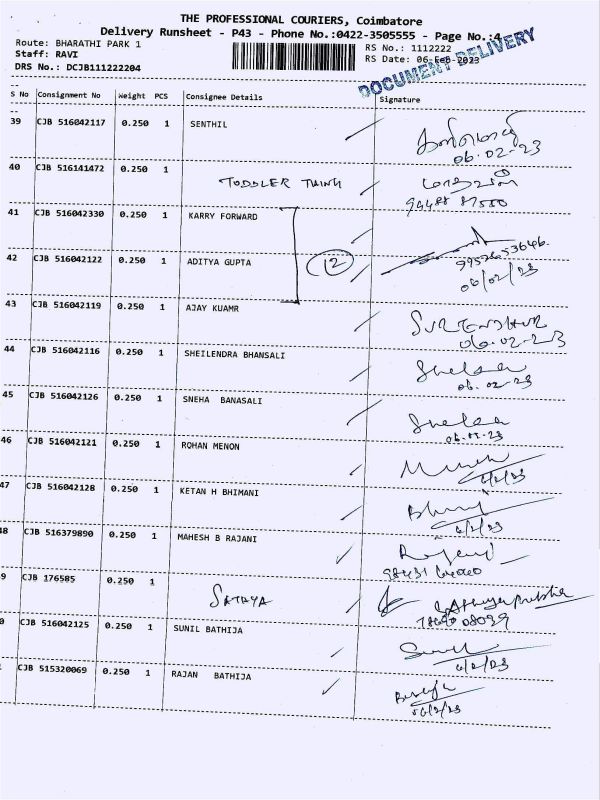 THE PROFESSIONAL COURIERS, Coimbatore
Delivery Runsheet - P43 - Phone No.:0422-3505555 - Page No.:4
Route: BHARATHI PARK 1
Staff: RAVI
DRS No.: DCJB111222204
RS No.: 1112222
RS Date: 06-Feb-2023
DOCUMENT DELIVERY
S No Consignment No Weight PCS Consignee Details Signature
39 CJB 516042117 0.250 1 SENTHIL
06.02-23
40 CJB 516141472 0.250 1 TODDLER THING
41 CJB 516042330 0.250 1 KARRY FORWARD
42 CJB 516042122 0.250 1 ADITYA GUPTA 12
9952653646
06/02/23
43 CJB 516042119 0.250 1 AJAY KUAMR
06.02-23
44 CJB 516042116 0.250 1 SHEILENDRA BHANSALI
06.02-23
45 CJB 516042126 0.250 1 SNEHA BANASALI
46 CJB 516042121 0.250 1 ROHAN MENON
6/2/23
47 CJB 516042128 0.250 1 KETAN H BHIMANI
6/2/23
48 CJB 516379890 0.250 1 MAHESH B RAJANI
9 CJB 176585 0.250 1 SATHYA
0 CJB 516042125 0.250 1 SUNIL BATHIJA
6/2/23
CJB 515320069 0.250 1 RAJAN BATHIJA
06/2/23